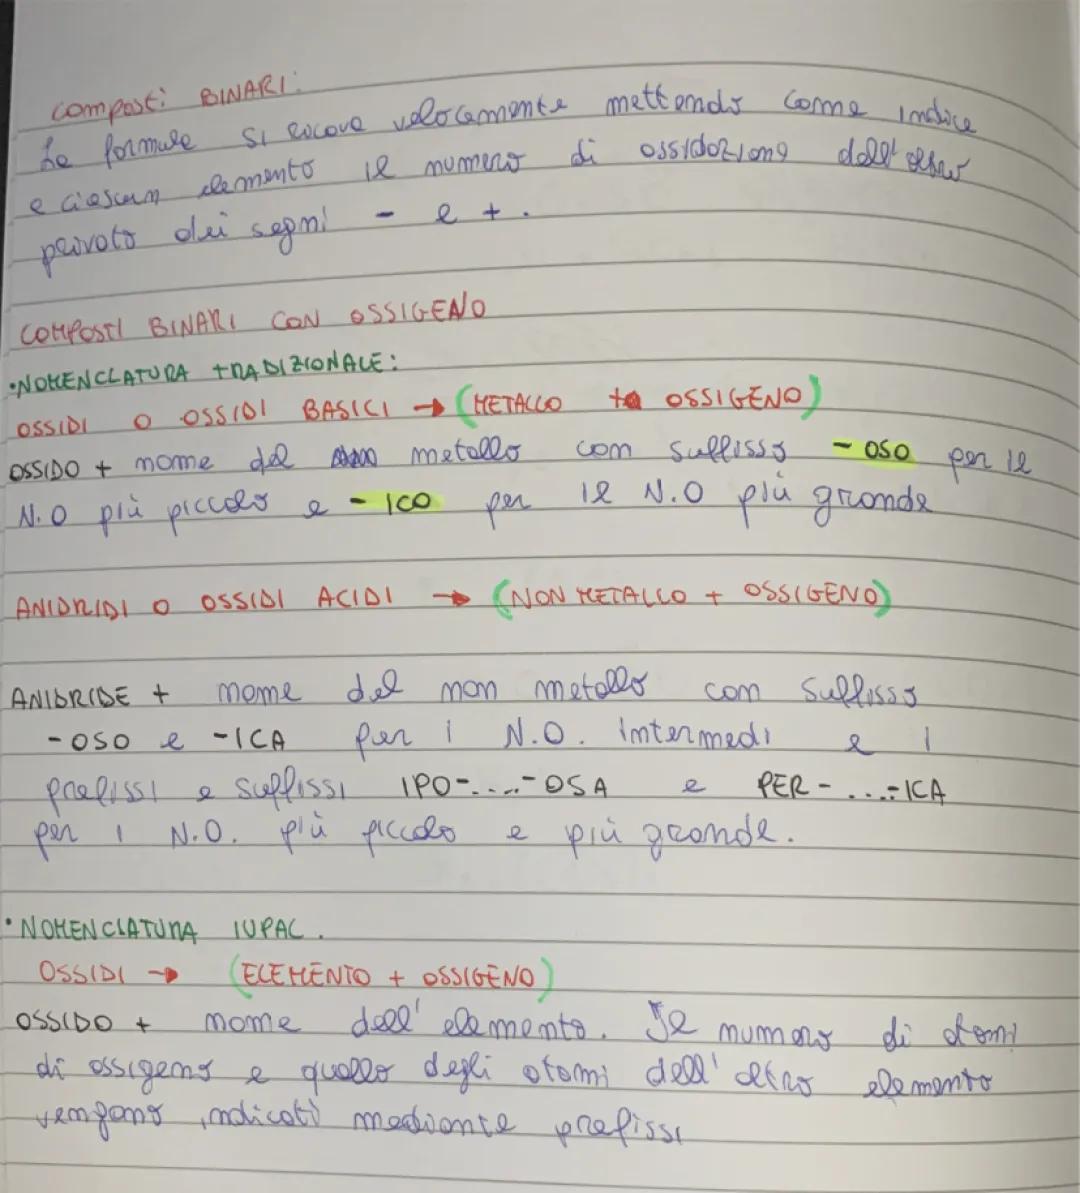 composti BINARI:
La formula si ricava velocemente mettendo come indice
a ciascun elemento il numero di ossidazione dell'altro
privato dei segni - e + .
COMPOSTI BINARI CON OSSIGENO
•NOMENCLATURA TRADIZIONALE:
OSSIDI O OSSIDI BASICI → (METALLO + OSSIGENO)
OSSIDO + nome del metallo con suffisso -OSO per il
N.O più piccolo e -ICO per il N.O più grande
ANIDRIDI O OSSIDI ACIDI → (NON METALLO + OSSIGENO)
ANIDRIDE + nome del non metallo con suffisso
-OSO e -ICA per i N.O. intermedi e i
prefissi e suffissi IPO-....-OSA e PER-...-ICA
per i N.O. più piccolo e più grande.
•NOMENCLATURA IUPAC.
OSSIDI → (ELEMENTO + OSSIGENO)
OSSIDO + nome dell'elemento. Il numero di atomi
di ossigeno e quello degli atomi dell'altro elemento
vengono indicati mediante prefissi